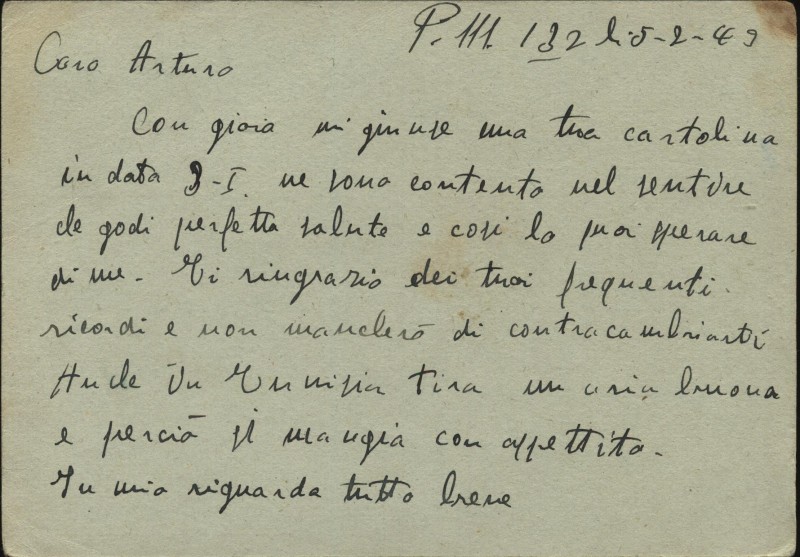 P.M. 132 li 5-2-43
Caro Arturo
Con gioia mi giunse una tua cartolina
in data 3-I. ne sono contento nel sentire
che godi perfetta salute e così lo puoi sperare
di me. Ti ringrazio dei tuoi frequenti
ricordi e non mancherò di contracambiarti
Anche in Tunisia tira un aria buona
e perciò si mangia con appettito.
In mio riguardo tutto bene